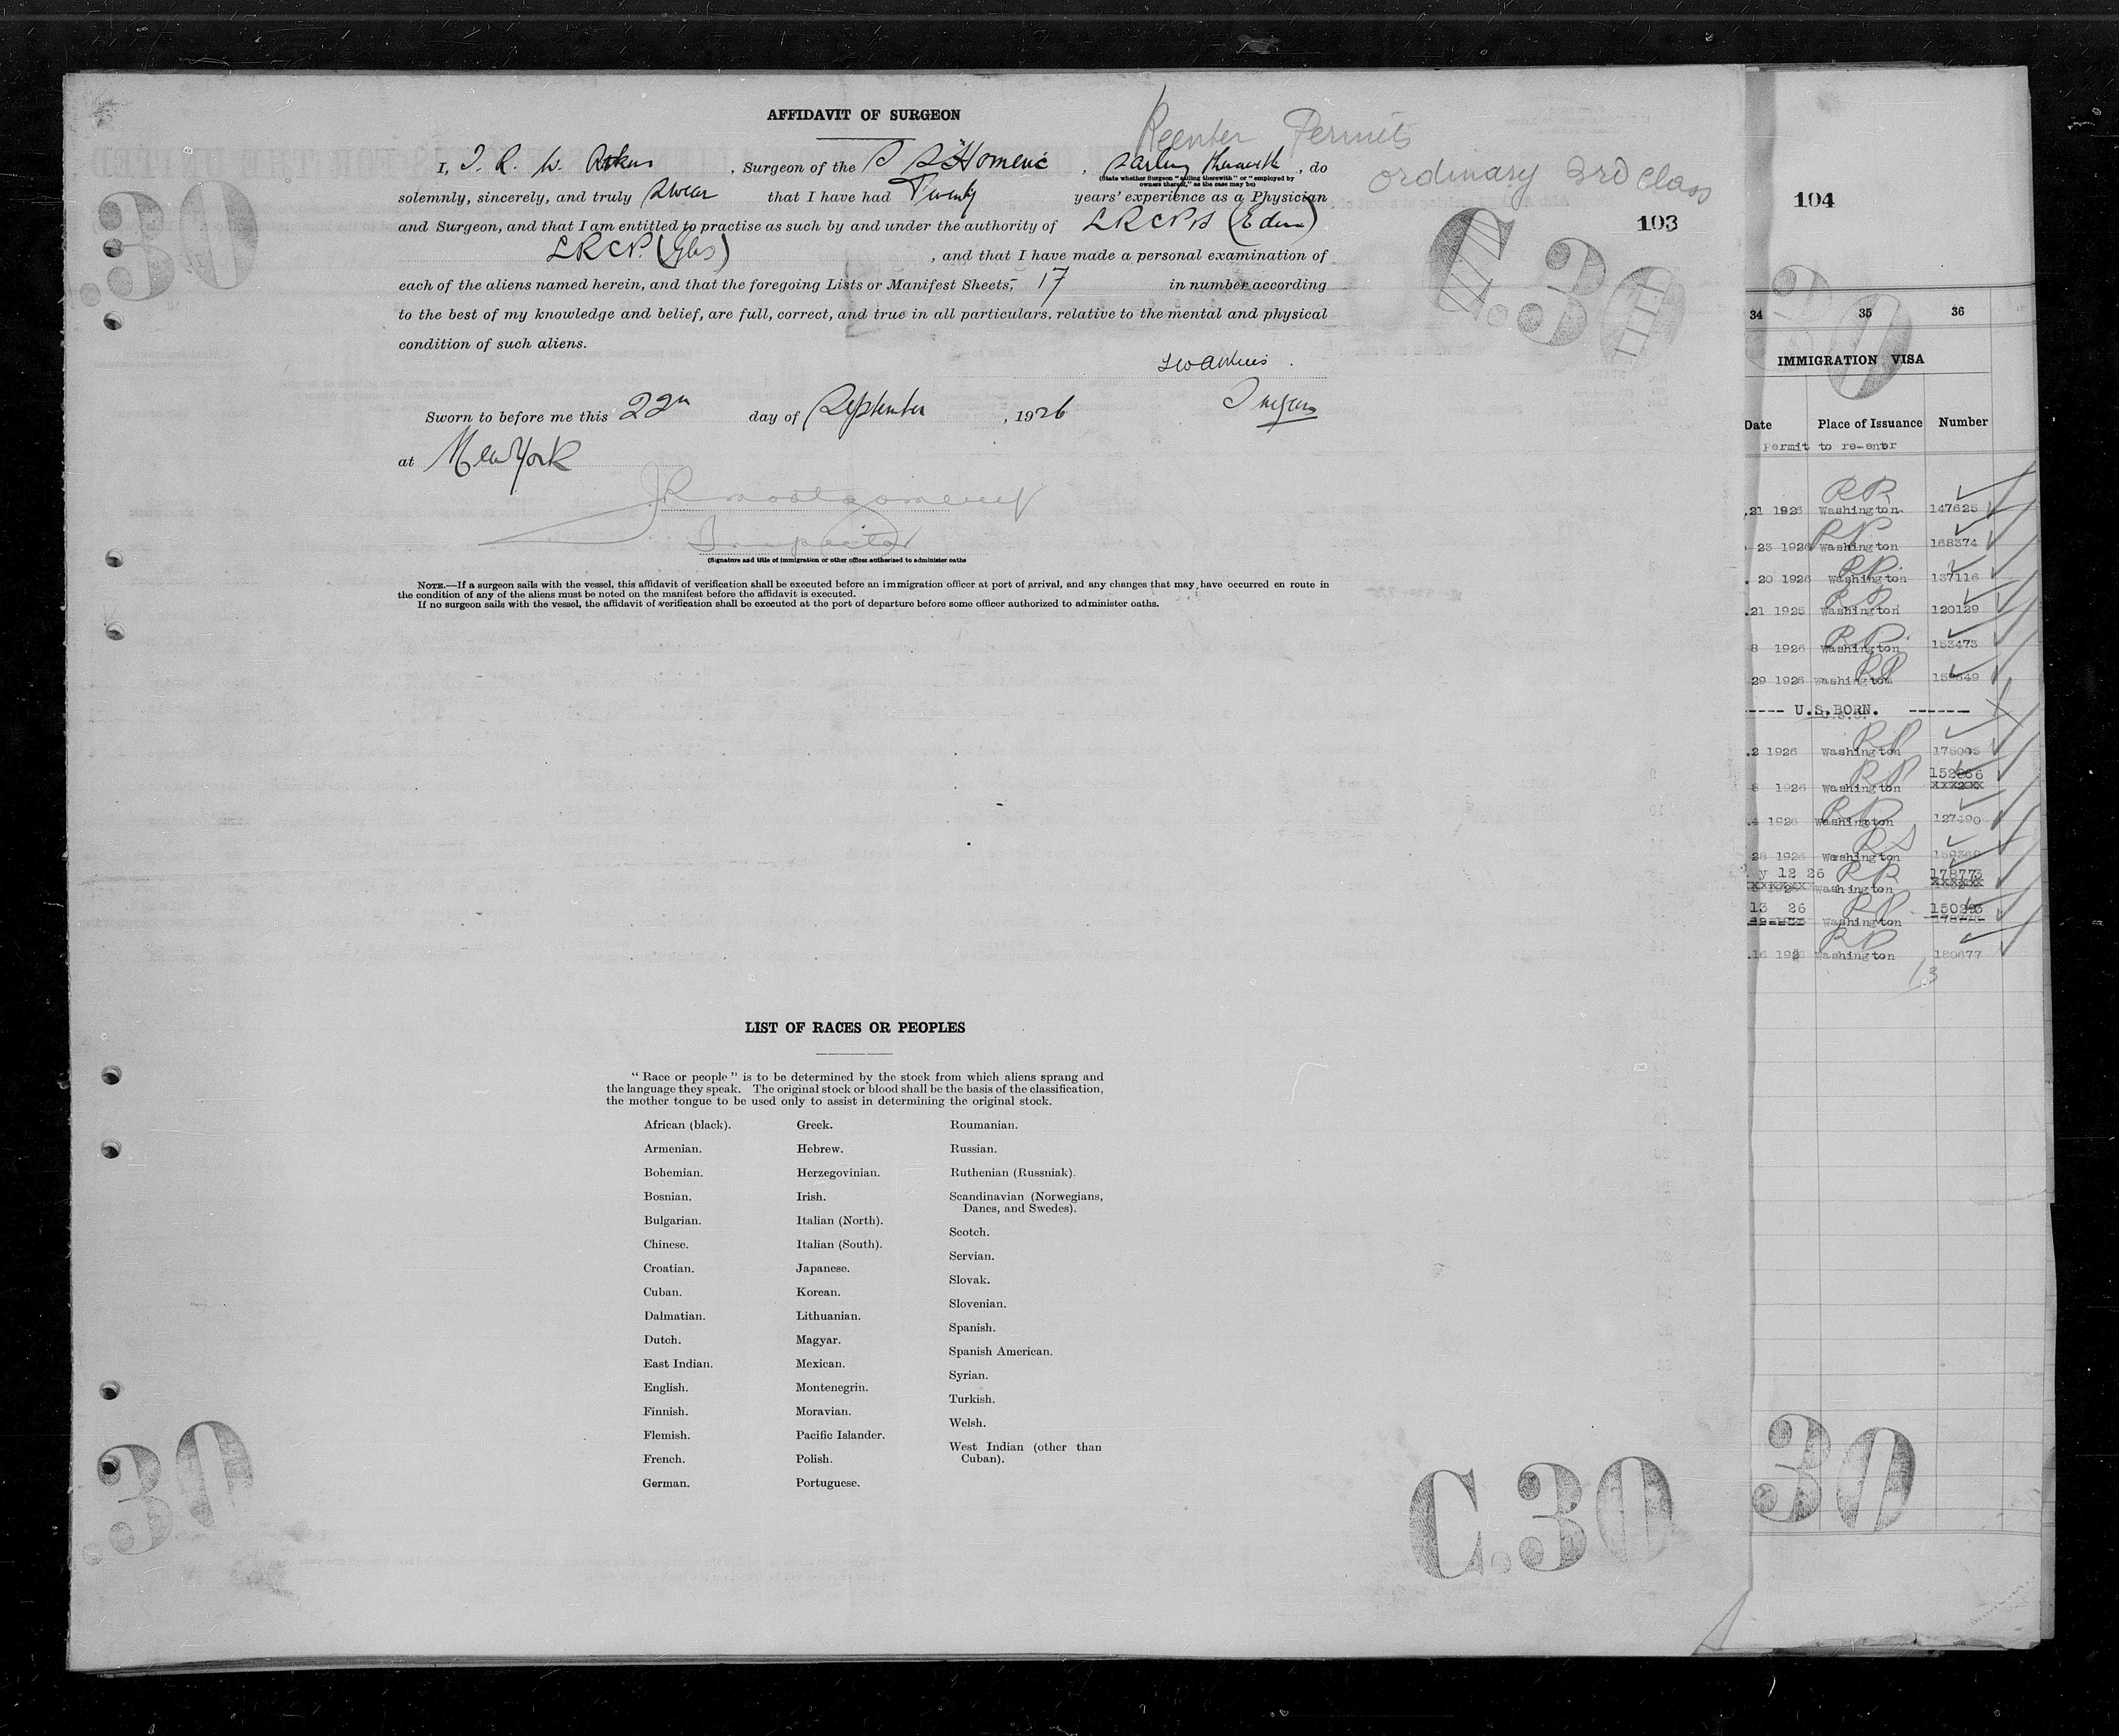 AFFIDAVIT OF SURGEON
Reenter Permits
ordinary 3rd class
I, J. R. W. , Surgeon of the S S "Homeric , Sailing therewith , do
(State whether Surgeon "sailing therewith" or "employed by
owners thereof," as the case may be)
solemnly, sincerely, and truly swear that I have had Twenty years' experience as a Physician
and Surgeon, and that I am entitled to practise as such by and under the authority of LRCPS (Edin)
LRCP. (Glas) , and that I have made a personal examination of
each of the aliens named herein, and that the foregoing Lists or Manifest Sheets, 17 in number according
to the best of my knowledge and belief, are full, correct, and true in all particulars, relative to the mental and physical
condition of such aliens.
Surgeon
Sworn to before me this 22nd day of September , 1926
at New York
JR Montgomery
Inspector
(Signature and title of immigration or other officer authorized to administer oaths
NOTE.—If a surgeon sails with the vessel, this affidavit of verification shall be executed before an immigration officer at port of arrival, and any changes that may have occurred en route in
the condition of any of the aliens must be noted on the manifest before the affidavit is executed.
If no surgeon sails with the vessel, the affidavit of verification shall be executed at the port of departure before some officer authorized to administer oaths.
103
C.30
.30
LIST OF RACES OR PEOPLES
"Race or people" is to be determined by the stock from which aliens sprang and
the language they speak. The original stock or blood shall be the basis of the classification,
the mother tongue to be used only to assist in determining the original stock.
African (black).
Armenian.
Bohemian.
Bosnian.
Bulgarian.
Chinese.
Croatian.
Cuban.
Dalmatian.
Dutch.
East Indian.
English.
Finnish.
Flemish.
French.
German.
Greek.
Hebrew.
Herzegovinian.
Irish.
Italian (North).
Italian (South).
Japanese.
Korean.
Lithuanian.
Magyar.
Mexican.
Montenegrin.
Moravian.
Pacific Islander.
Polish.
Portuguese.
Roumanian.
Russian.
Ruthenian (Russniak).
Scandinavian (Norwegians,
Danes, and Swedes).
Scotch.
Servian.
Slovak.
Slovenian.
Spanish.
Spanish American.
Syrian.
Turkish.
Welsh.
West Indian (other than
Cuban).
.30
C.30
104
30
34 35 36
IMMIGRATION VISA
Date Place of Issuance Number
Permit to re-enter
.21 1926 Washington 147625
23 1926 Washington 168374
20 1926 Washington 137116
.21 1925 Washington 120129
8 1926 Washington 153473
29 1926 Washington
----- U.S.BORN. ------
.2 1926 Washington
8 1926 Washington
.4 1926 Washington
28 1926 Washington
y 12 26 Washington 178773
13 26 Washington
.16 192 Washington 180677
13
30